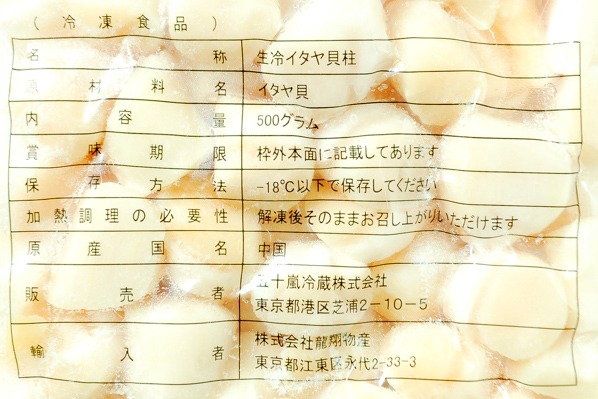 （冷凍食品）
名称 生冷イタヤ貝柱
原材料名 イタヤ貝
内容量 500グラム
賞味期限 枠外本面に記載してあります
保存方法 -18℃以下で保存してください
加熱調理の必要性 解凍後そのままお召し上がりいただけます
原産国名 中国
販売者 五十嵐冷蔵株式会社
東京都港区芝浦2-10-5
輸入者 株式会社龍翔物産
東京都江東区永代2-33-3